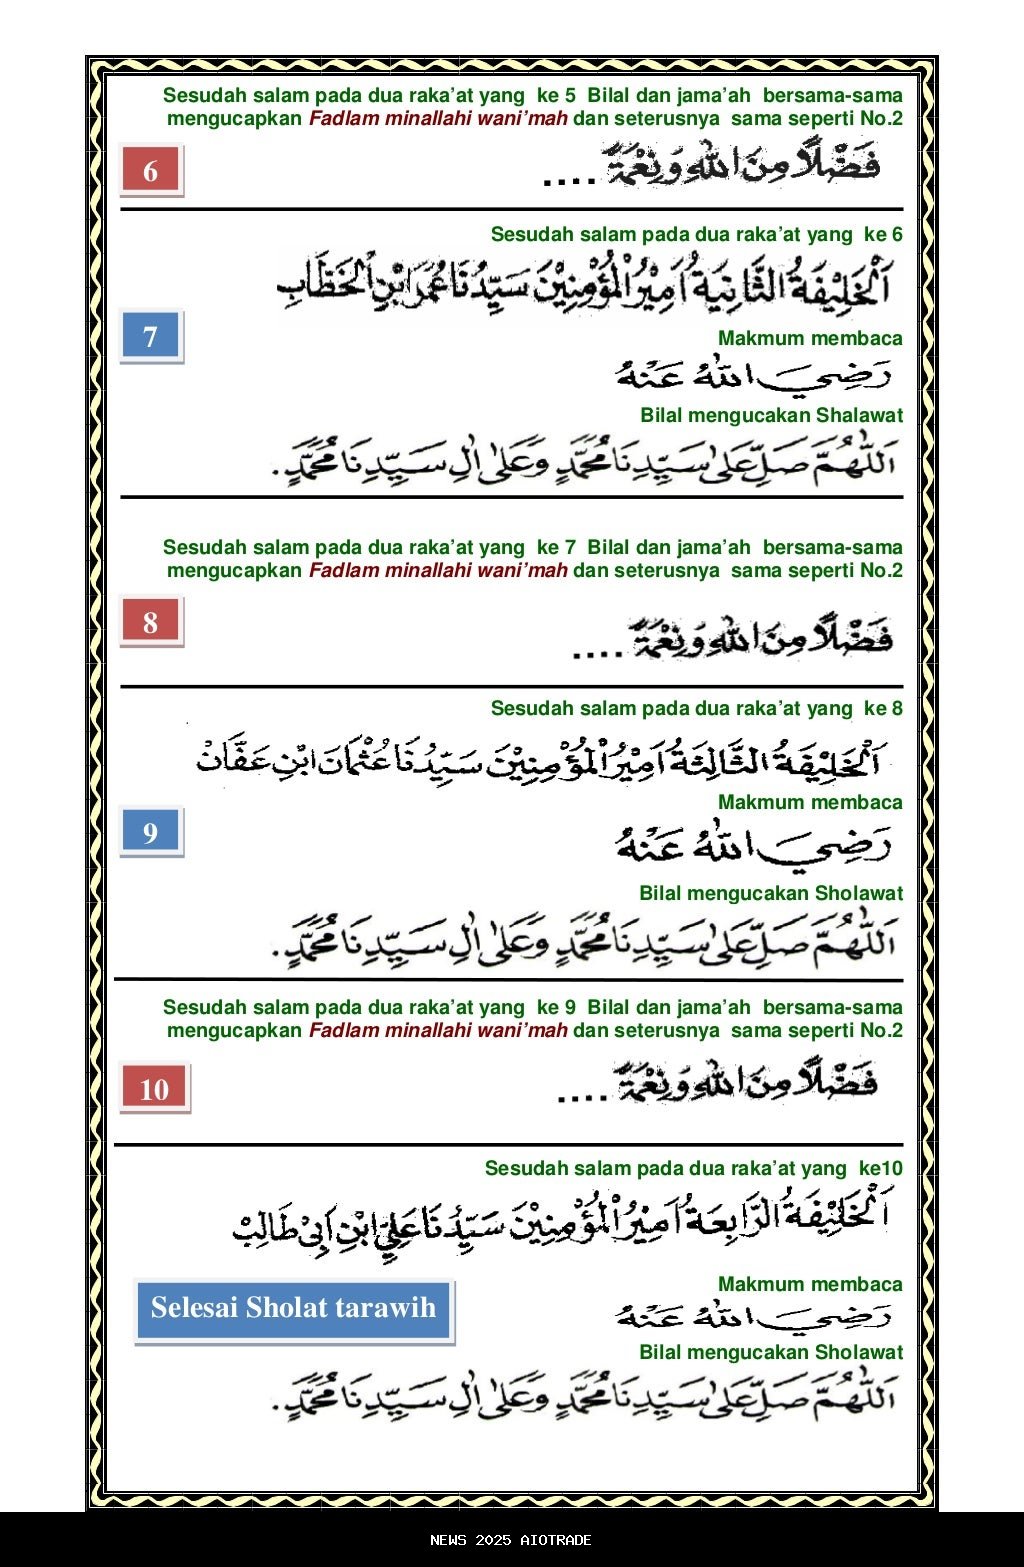 Sesudah salam pada dua raka’at yang ke 5 Bilal dan jama’ah bersama-sama
mengucapkan Fadlam minallahi wani’mah dan seterusnya sama seperti No.2
6
فَضْلًا مِنَ اللهِ وَنِعْمَةً ....
Sesudah salam pada dua raka’at yang ke 6
اَلْخَلِيْفَةُ الثَّانِيَةُ اَمِيْرُ الْمُؤْمِنِيْنَ سَيِّدُنَا عُمَرَ ابْنِ الْخَطَّابِ
7
Makmum membaca
رَضِيَ اللهُ عَنْهُ
Bilal mengucakan Shalawat
اَللّٰهُمَّ صَلِّ عَلٰى سَيِّدِنَا مُحَمَّدٍ وَعَلٰى اٰلِ سَيِّدِنَا مُحَمَّدٍ.
Sesudah salam pada dua raka’at yang ke 7 Bilal dan jama’ah bersama-sama
mengucapkan Fadlam minallahi wani’mah dan seterusnya sama seperti No.2
8
فَضْلًا مِنَ اللهِ وَنِعْمَةً ....
Sesudah salam pada dua raka’at yang ke 8
اَلْخَلِيْفَةُ الثَّالِثَةُ اَمِيْرُ الْمُؤْمِنِيْنَ سَيِّدُنَا عُثْمَانَ ابْنِ عَفَّانْ
Makmum membaca
9
رَضِيَ اللهُ عَنْهُ
Bilal mengucakan Sholawat
اَللّٰهُمَّ صَلِّ عَلٰى سَيِّدِنَا مُحَمَّدٍ وَعَلٰى اٰلِ سَيِّدِنَا مُحَمَّدٍ.
Sesudah salam pada dua raka’at yang ke 9 Bilal dan jama’ah bersama-sama
mengucapkan Fadlam minallahi wani’mah dan seterusnya sama seperti No.2
10
فَضْلًا مِنَ اللهِ وَنِعْمَةً ....
Sesudah salam pada dua raka’at yang ke10
اَلْخَلِيْفَةُ الرَّابِعَةُ اَمِيْرُ الْمُؤْمِنِيْنَ سَيِّدُنَا عَلِيِّ ابْنِ اَبِيْ طَالِبْ
Makmum membaca
Selesai Sholat tarawih
رَضِيَ اللهُ عَنْهُ
Bilal mengucakan Sholawat
اَللّٰهُمَّ صَلِّ عَلٰى سَيِّدِنَا مُحَمَّدٍ وَعَلٰى اٰلِ سَيِّدِنَا مُحَمَّدٍ.
NEWS 2025 AIOTRADE